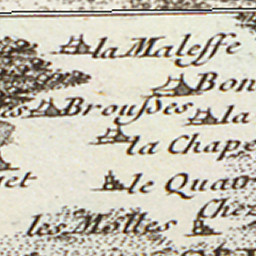 la Malesse
Bon
es Brousses la
la Chape
et le Quar
Chez
les Mottes